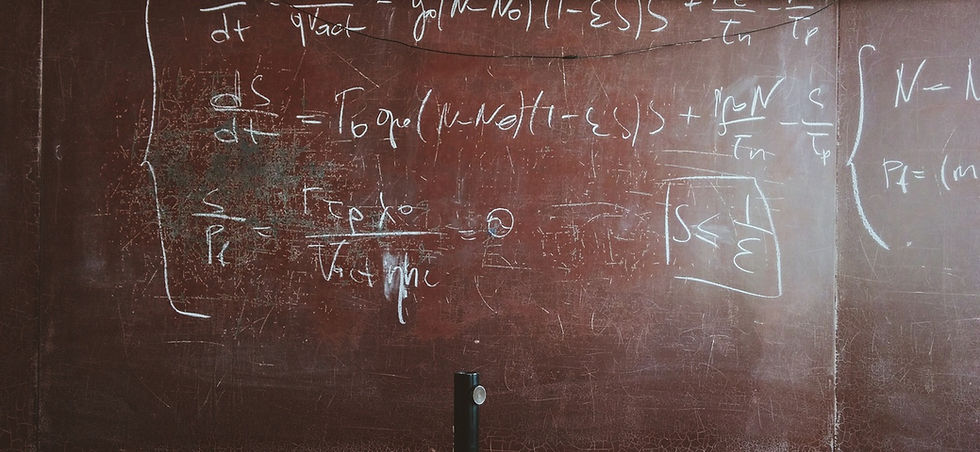 dt = qVact - g0(N-N0)(1-εS)S + τn - τp
dS/dt = Γ0 g0(N-N0)(1-εS)S + N/τn - S/τp
S/Pf = Γτpλ0/Vactηhc =
S ≤ 1/ε
N - N
Pf = (m